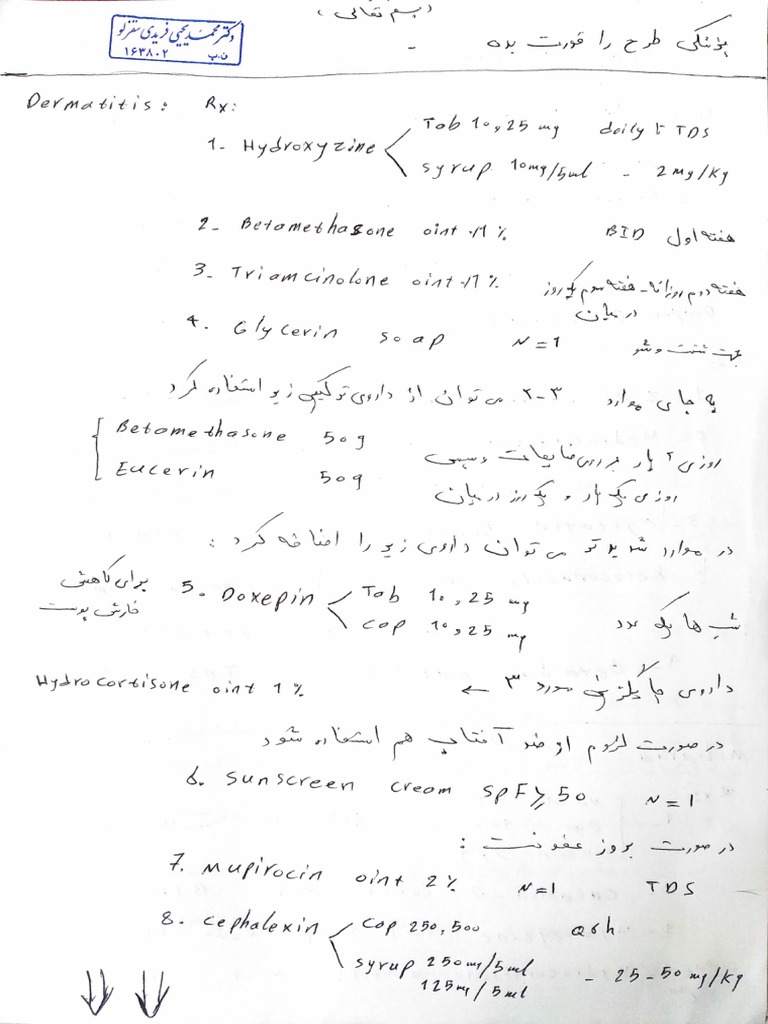 (بسم تعالی)
دکتر محمد یحیی فریدی سقزلو
ن.پ ۱۶۳۸۰۲
پزشکی طرح را قورت بده
Dermatitis: Rx:
1- Hydroxyzine
Tab 10, 25 mg daily تا TDS
syrup 10mg/5ml - 2mg/Kg
2- Betamethasone oint ۰/۱ % BID هفته اول
3- Triamcinolone oint ۰/۱ % هفته دوم روزانه - هفته سوم یک روز در میان
4- Glycerin soap N=1 جهت شست و شو
به جای موارد ۳-۲ می توان از داروی ترکیبی زیر استفاده کرد
Betamethasone 50g
Eucerin 50g
روزی ۲ بار بر روی ضایعات و سپس
روزی یک بار و یک روز در میان
در موارد شدید تر می توان داروی زیر را اضافه کرد :
5. Doxepin
Tab 10, 25 mg
Cap 10, 25 mg
شب ها یک عدد
برای کاهش خارش پوست
داروی جایگزین مورد ۳ ← Hydrocortisone oint 1%
در صورت لزوم از ضد آفتاب هم استفاده شود
6. Sunscreen cream SPF≥50 N=1
در صورت بروز عفونت :
7. Mupirocin oint 2% N=1 TDS
8. Cephalexin
Cap 250, 500 Q6h
syrup 250mg/5ml
125mg/5ml - 25-50 mg/Kg